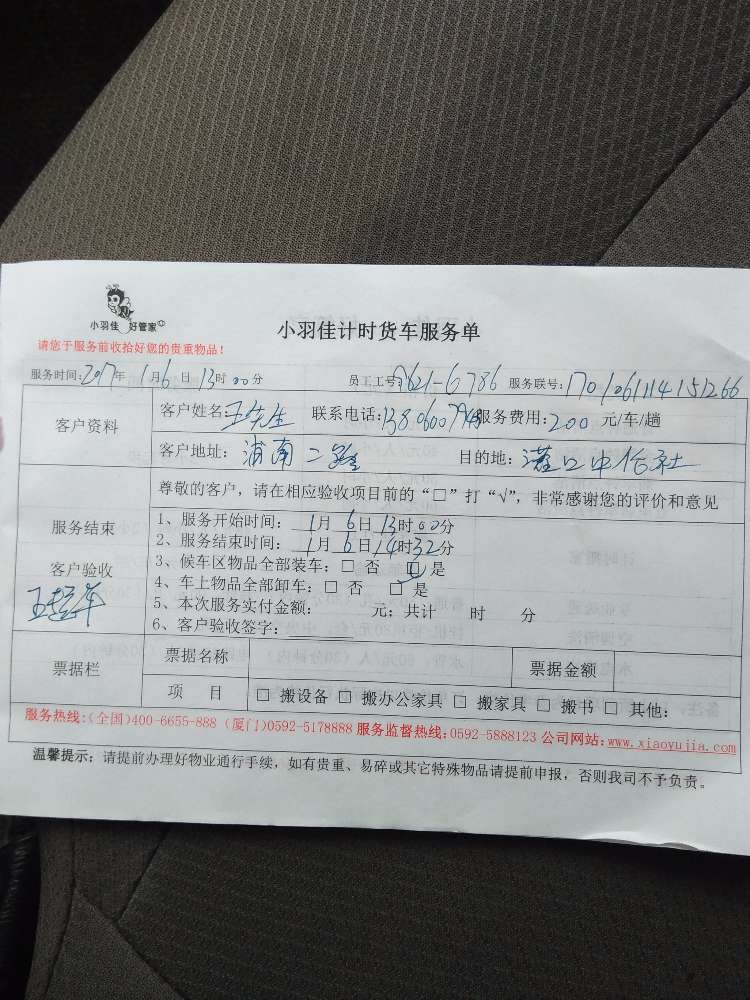 小羽佳 好管家
小羽佳计时货车服务单
请您于服务前收拾好您的贵重物品！
服务时间：2017年1月6日13时00分 员工工号：A621-6786 服务联号：1701061114151266
客户资料 客户姓名：王先生 联系电话： 服务费用：200 元/车/趟
客户地址：浦南二路 目的地：灌口中信社
尊敬的客户，请在相应验收项目前的“□”打“√”，非常感谢您的评价和意见
服务结束
客户验收
1、服务开始时间：1月6日13时00分
2、服务结束时间：1月6日14时32分
3、候车区物品全部装车：□ 否 □ 是
4、车上物品全部卸车：□ 否 □ 是
5、本次服务实付金额： 元；共计 时 分
6、客户验收签字：
票据栏 票据名称 票据金额
项 目 □ 搬设备 □ 搬办公家具 □ 搬家具 □ 搬书 □ 其他：
服务热线：(全国)400-6655-888 (厦门)0592-5178888 服务监督热线：0592-5888123 公司网站：www.xiaoyujia.com
温馨提示：请提前办理好物业通行手续，如有贵重、易碎或其它特殊物品请提前申报，否则我司不予负责。